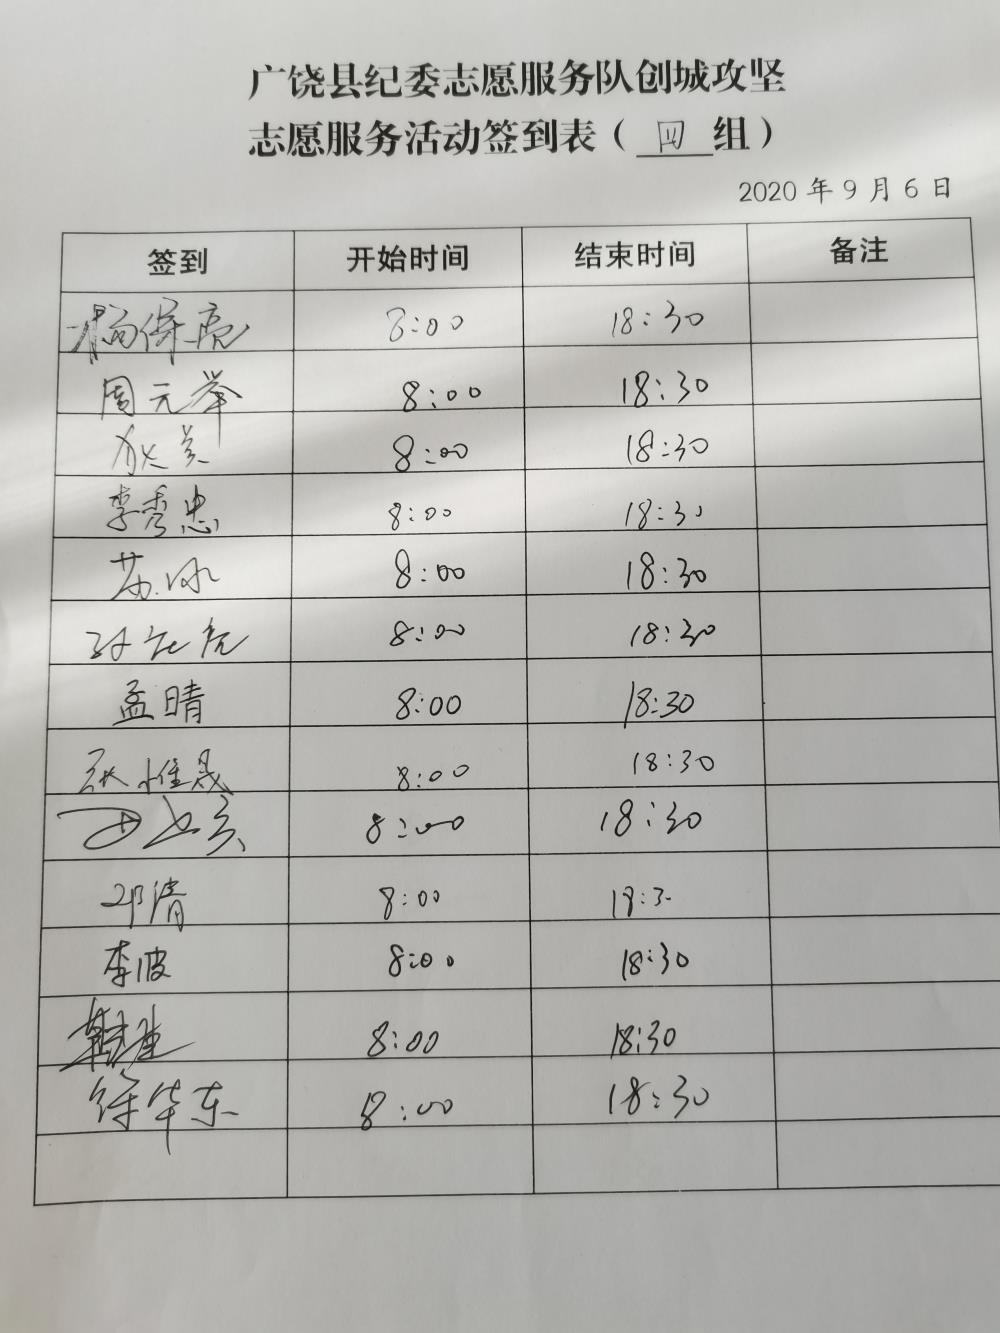 广饶县纪委志愿服务队创城攻坚
志愿服务活动签到表（四组）
2020年9月6日
签到 开始时间 结束时间 备注
杨保亮 8:00 18:30
周元举 8:00 18:30
8:00 18:30
李秀忠 8:00 18:30
苏冰 8:00 18:30
8:00 18:30
孟晴 8:00 18:30
张惟晟 8:00 18:30
8:00 18:30
邓清 8:00 18:3
李波 8:00 18:30
韩 8:00 18:30
徐华东 8:00 18:30